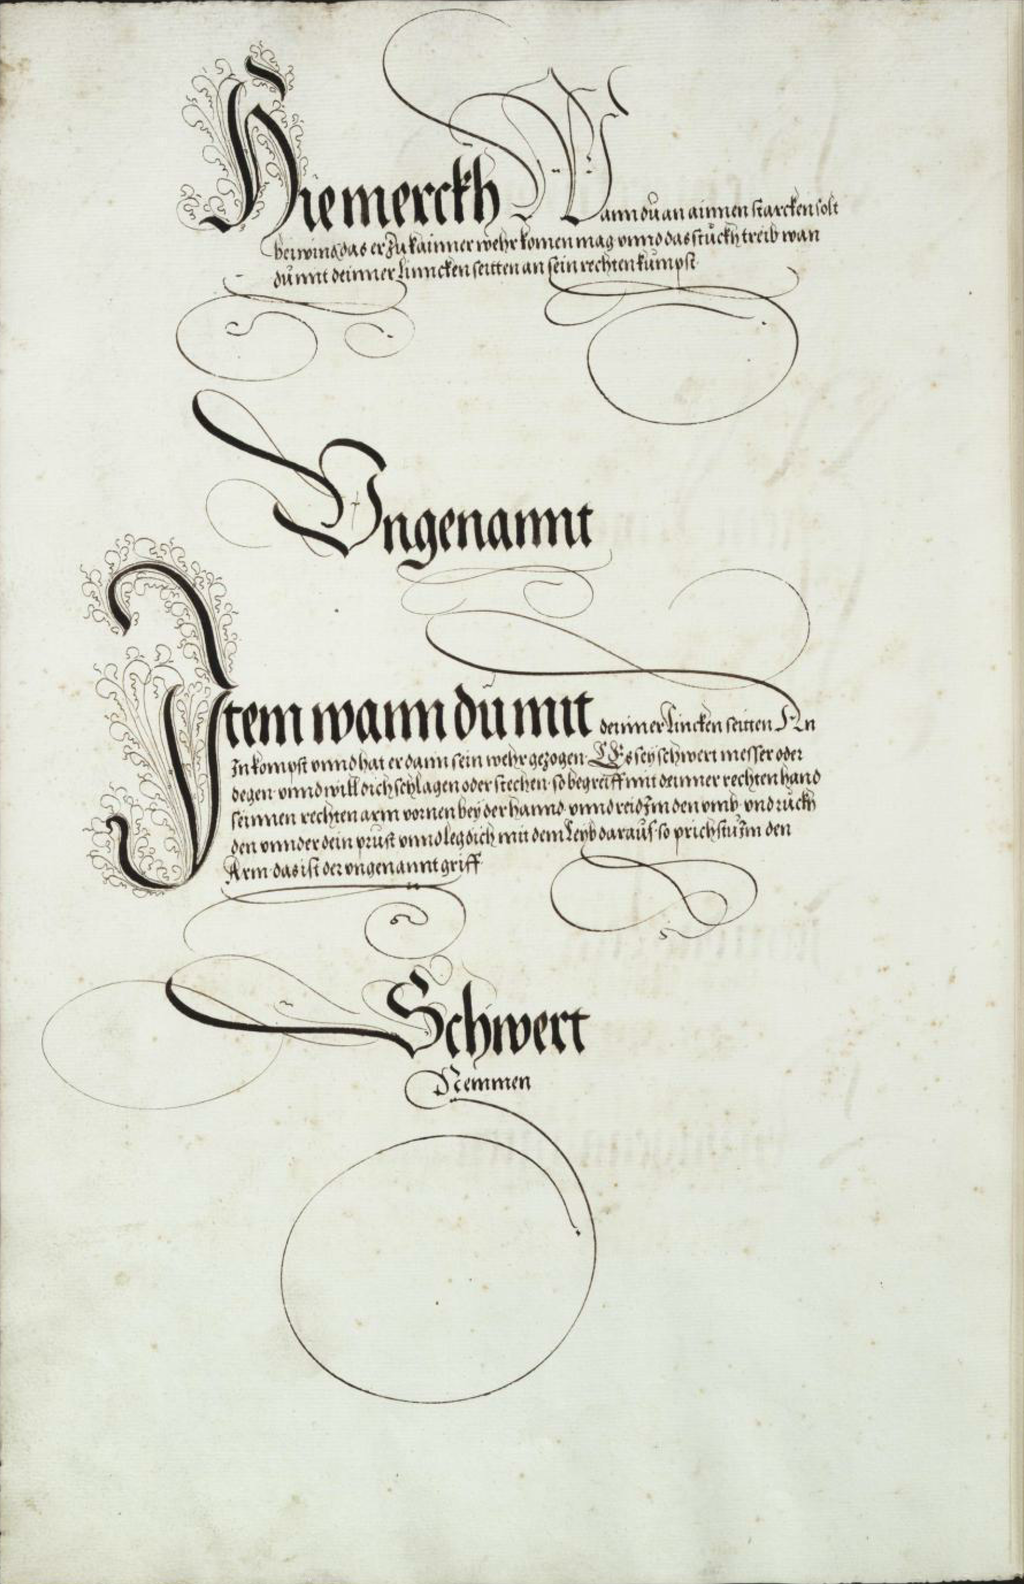 Hie merckh Wann du an ainnen starcken solt
bezwing das er zu kainner wehr komen mag vnnd das stuckh treib wan
du mit deinner Linncken seitten an sein rechten kumpst
Vngenannt
Item wann du mit deinner Lincken seitten An
In kompst vnnd hat er dann sein wehr gezogen Es sey schwert messer oder
degen vnnd will dich schlagen oder stechen so begreiff mit deinner rechten hand
seinnen rechten arm vornen bey der hannd vnnd reidt Im den vmb vnd ruckh
den vnnder dein prust vnnd leg dich mit dem Leyb darauf so prichstu Im den
Arm das ist der vngenannt griff
Schwert
Nemmen